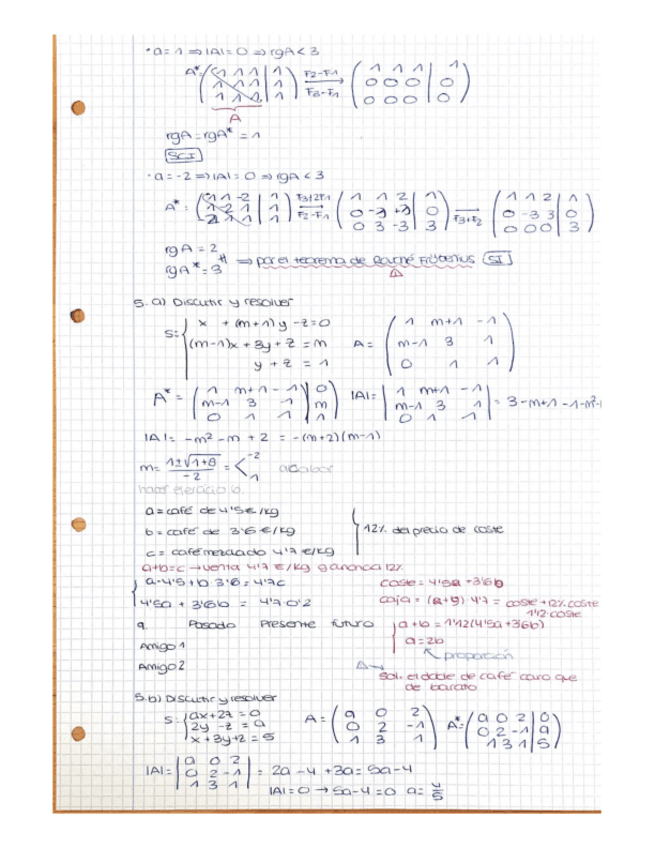 · a=1 ⇒ |A|=0 ⇒ rgA<3
A*= ( 1 1 1 | 1 ; 1 1 1 | 1 ; 1 1 1 | 1 ) F2-F1 F3-F1 → ( 1 1 1 | 1 ; 0 0 0 | 0 ; 0 0 0 | 0 )
A
rgA = rgA* = 1
SCI
· a=-2 ⇒ |A|=0 ⇒ rgA<3
F3+2F1 F2-F1 → ( 1 1 2 | 1 ; 0 -3 +3 | 0 ; 0 3 -3 | 3 ) F3+F2 → ( 1 1 2 | 1 ; 0 -3 3 | 0 ; 0 0 0 | 3 )
rgA = 2
rgA* = 3 ⇒ por el teorema de Rouché Fröbenius SI
5. a) Discutir y resolver
S: { x + (m+1)y - z = 0
(m-1)x + 3y + z = m
y + z = 1
A = ( 1 m+1 -1 ; m-1 3 1 ; 0 1 1 )
A* = ( 1 m+1 -1 | 0 ; m-1 3 1 | m ; 0 1 1 | 1 ) |A| = | 1 m+1 -1 ; m-1 3 1 ; 0 1 1 | = 3-m+1-1-m²-
|A| = -m² - m + 2 = -(m+2)(m-1)
m = 1±√1+8 / -2 = < -2 1 acabar
hacer ejercicio 6.
a = café de 4'5 €/kg
b = café de 3'6 €/kg } 12% del precio de coste
c = café mezclado 4'7 €/kg
a+b=c → venta 4'7 €/kg ganancia 12%
{ a·4'5 + b·3'6 = 4'7c
coste = 4'5a + 3'6b
4'5a + 3'6b = 4'7·0'2
caja = (a+b) 4'7 = coste + 12% coste
1'12·coste
9. Pasado Presente futuro
{ a+b = 1'12(4'5a+3'6b)
a = 2b
Amigo 1
proporción
Amigo 2
Sol. el doble de café caro que de barato
5. b) Discutir y resolver
S: { ax+2z = 0
2y - z = a
x + 3y + z = 5
A = ( a 0 2 ; 0 2 -1 ; 1 3 1 ) A* = ( a 0 2 | 0 ; 0 2 -1 | a ; 1 3 1 | 5 )
|A| = | a 0 2 ; 0 2 -1 ; 1 3 1 | = 2a - 4 + 3a = 5a - 4
|A| = 0 → 5a - 4 = 0 a = 4/5